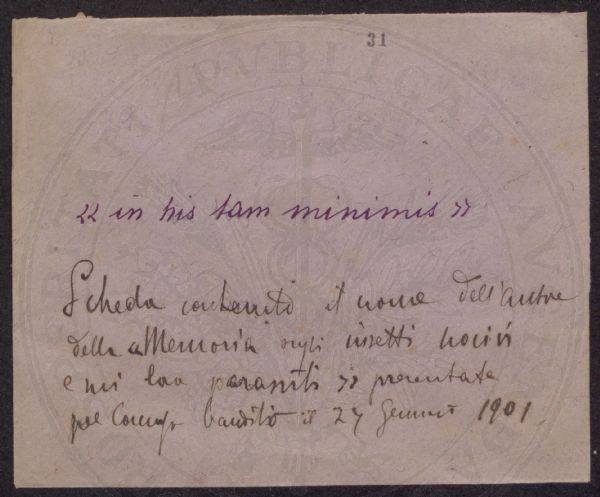 31
« in his tam minimis »
Scheda contenente il nome dell'autore
della «Memoria sugli insetti nocivi
e sui loro parassiti » presentata
pel Concorso bandito il 27 Gennaio 1901